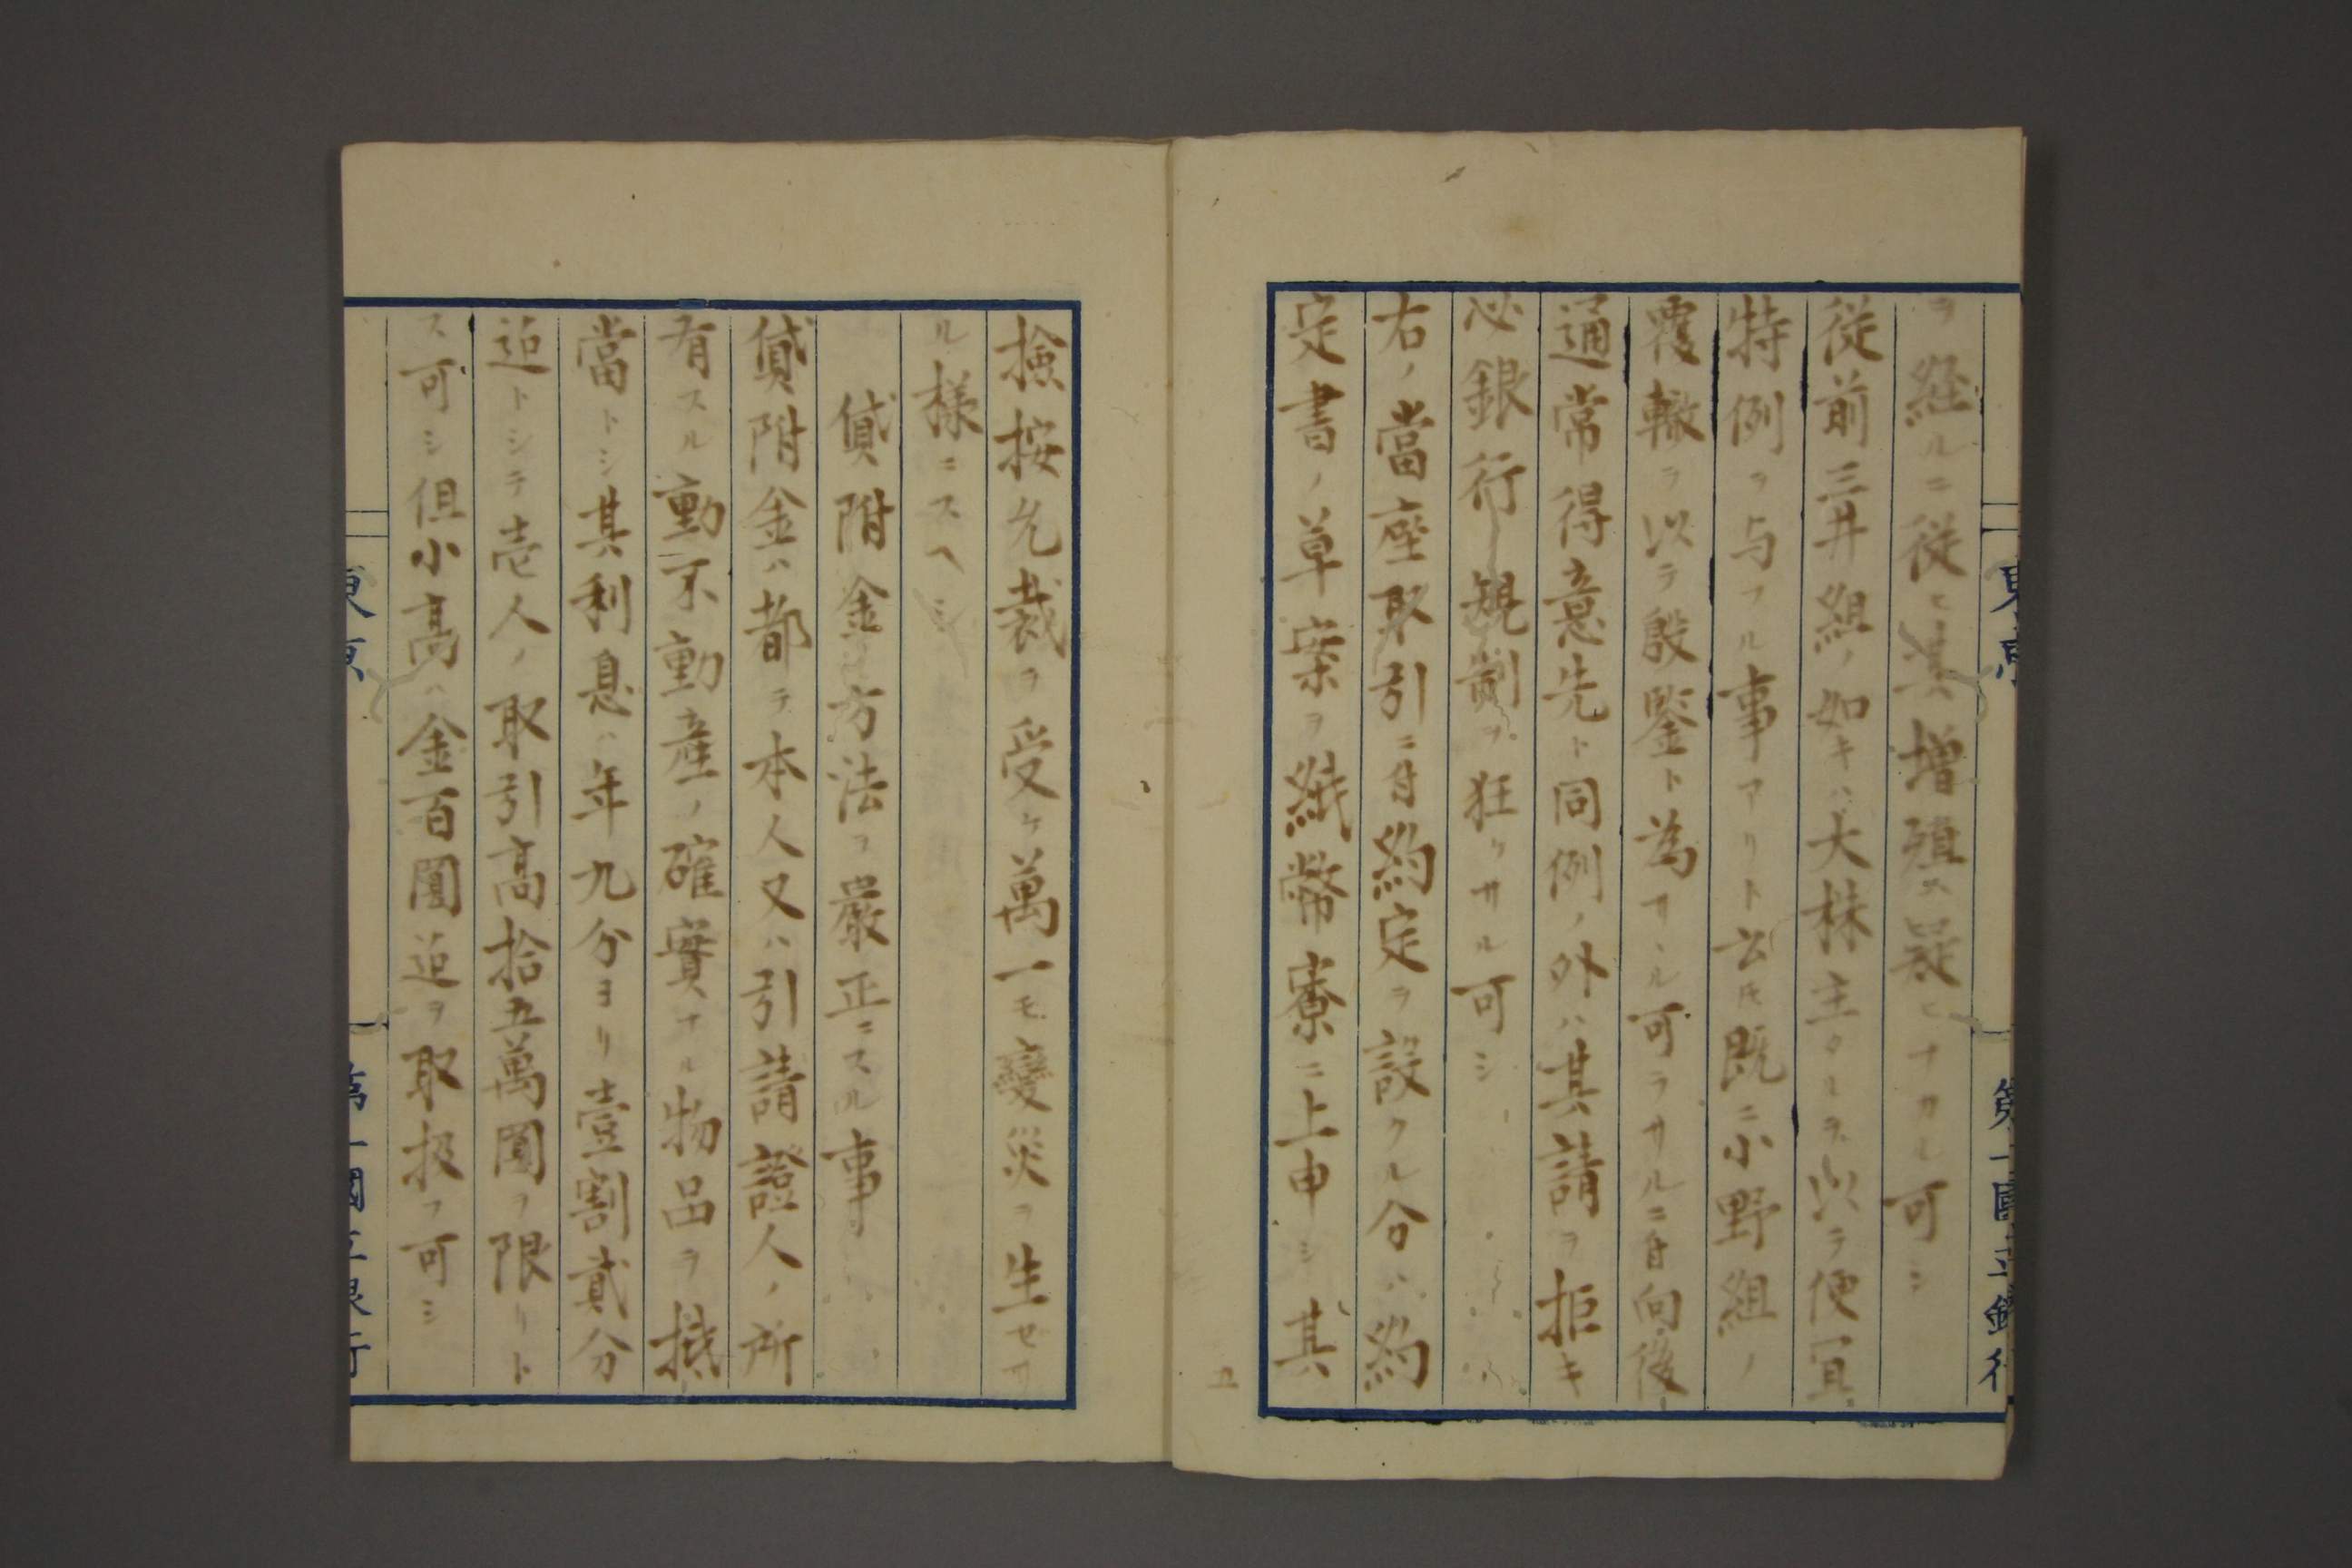 ヲ経ルニ従ヒ其増殖ス疑ヒナカル可シ
従前三井組ノ如キハ大株主タルヲ以テ便宜
特例ヲ与フル事アリト云𪜈既ニ小野組ノ
覆轍ヲ以テ殷鑒ト為サヽル可ラサルニ付向後
通常得意先ト同例ノ外ハ其請ヲ拒キ
必銀行ノ規制ヲ狂ケサル可シ
右ノ當座取引ニ付約定ヲ設クル分ハ約
定書ノ草案ヲ紙幣寮ニ上申シ其
東京
第一國立銀行
五
撿按允裁ヲ受ケ萬一モ變災ヲ生セサ
ル様ニスヘシ
貸附金方法ヲ嚴正ニスル事
貸附金ハ都テ本人又ハ引請證人ノ所
有スル動不動產ノ確實ナル物品ヲ抵
當トシ其利息ハ年九分ヨリ壹割貳分
迄トシテ壱人ノ取引高拾五萬圓ヲ限リト
ス可シ但小高ハ金百圓迄ヲ取扱フ可シ
東京
第一國立銀行